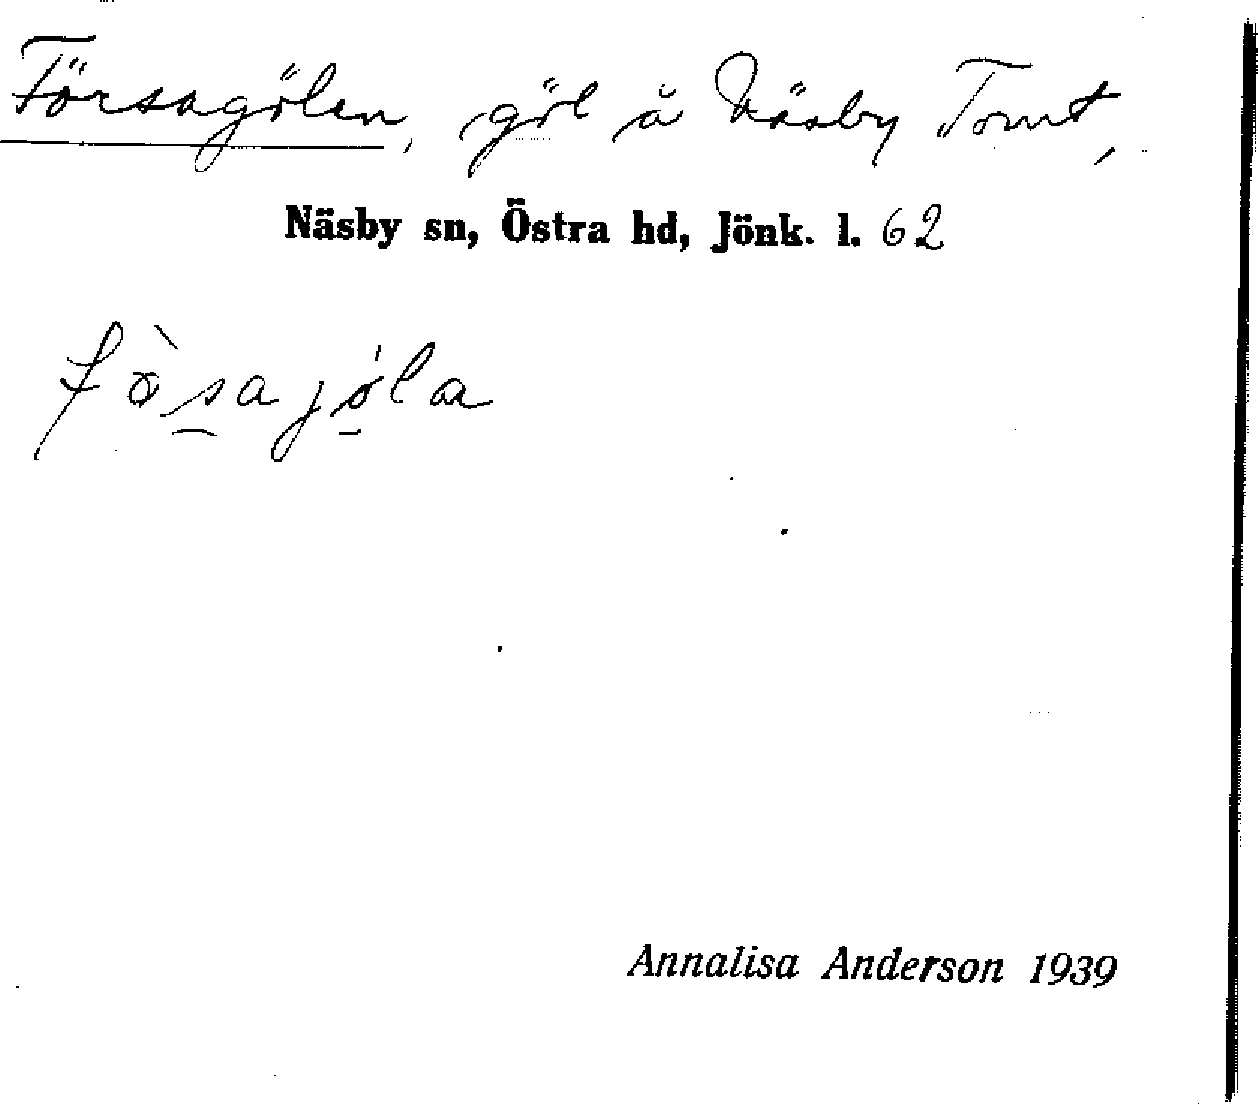 Försagölen, göl å Näsby Tomt,
Näsby sn, Östra hd, Jönk. l. 62
fòsajöla
Annalisa Anderson 1939